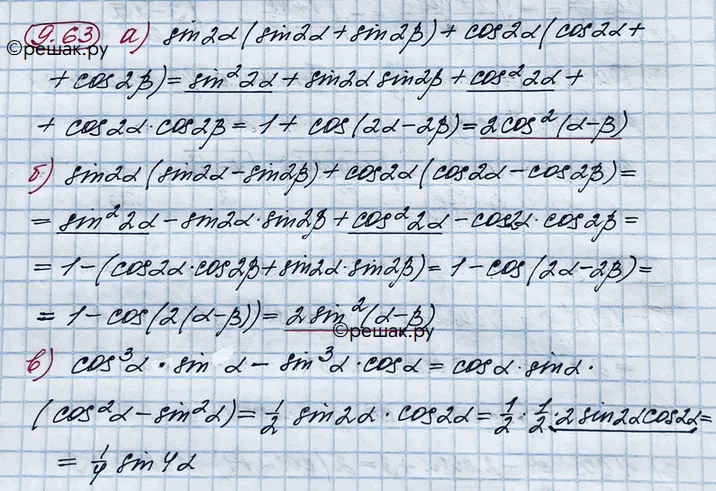 9.63 а) sin2α(sin2α+sin2β)+cos2α(cos2α+
©решак.ру
+cos2β)=sin²2α+sin2α sin2β+cos²2α+
+cos2α·cos2β=1+cos(2α-2β)=2cos²(α-β)
б) sin2α(sin2α-sin2β)+cos2α(cos2α-cos2β)=
=sin²2α-sin2α·sin2β+cos²2α-cos2α·cos2β=
=1-(cos2α·cos2β+sin2α·sin2β)=1-cos(2α-2β)=
=1-cos(2(α-β))=2sin²(α-β)
©решак.ру
в) cos³α·sin α-sin³α·cosα=cosα·sinα·
(cos²α-sin²α)=1/2 sin2α·cos2α=1/2·1/2·2sin2αcos2α=
=1/4 sin4α